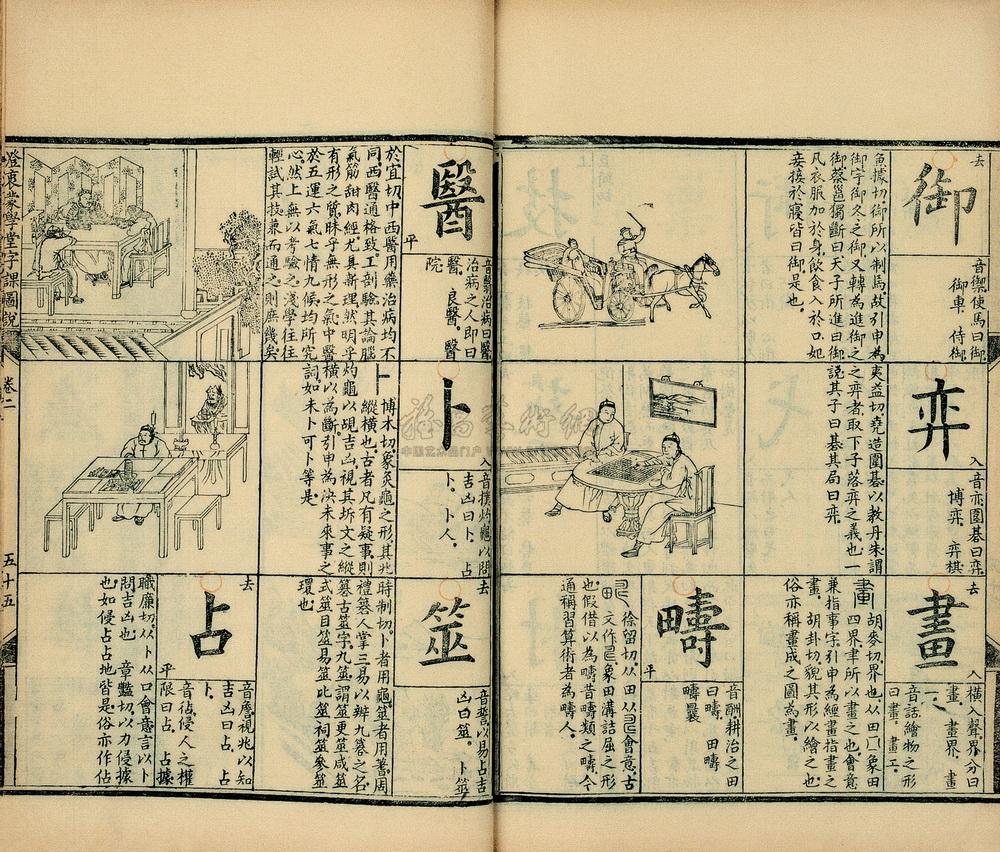 去
御
音禦使馬曰御
御車　侍御
魚據切御所以制馬故引申為
御字御冬之御又轉為進御之
御蔡邕獨斷曰天子所進曰御
凡衣服加於身飲食入於口妃
妾接於寢皆曰御是也
弈
入
音亦圍棊曰弈
博弈　弈棋
夷益切堯造圍棊以教丹朱謂
之弈者取下子落弈之義也一
説其子曰棊其局曰弈
去
畫
入
橫入聲界分曰
畫　畫界　畫
一
音話繪物之形
曰畫　畫工
畫　胡麥切界也从田
象田
四界聿所以畫之也會意
兼指事字引申為經畫指畫之
畫　胡卦切貌其形以繪之也
俗亦稱畫成之圖為畫
疇
平
音酬耕治之田
曰疇　田疇
疇曩
徐留切从田从
會意古
文作
象田溝詰屈之形
也假借以為疇昔疇類之疇今
通稱習算術者為疇人
醫
平
音翳治病曰醫
治病之人即曰
醫　良醫　醫
院
於宜切中西醫用藥治病均不
同西醫通格致工剖驗其論腦
氣筋甜肉經尤具新理然明乎
有形之質昧乎無形之氣中醫
於五運六氣七情九候均所究
心然上無以考驗之淺學往往
輕試其技兼而通之則庶幾矣
卜
入
音撲灼龜以問
吉凶曰卜　占
卜　卜人
卜　博木切象灸龜之形其兆
縱橫也古者凡有疑事則
灼龜以覘吉凶視其坼文之縱
橫以為斷引申為決未來事之
詞如未卜可卜等是
去
筮
音誓以易占吉
凶曰筮　卜筮
時制切卜者用龜筮者用蓍周
禮簭人掌三易以辨九簭之名
簭古筮字九筮謂更筮咸筮
式筮目筮易筮比筮祠筮參筮
環也
去
占
平
音詹視兆以知
吉凶曰占　占
卜
音佔侵人之權
限曰占　占據
職廉切从卜从口會意言以卜
問吉凶也　章豔切以力侵據
也如侵占占地皆是俗亦作佔
澄衷蒙學堂字課圖説
卷二
五十五